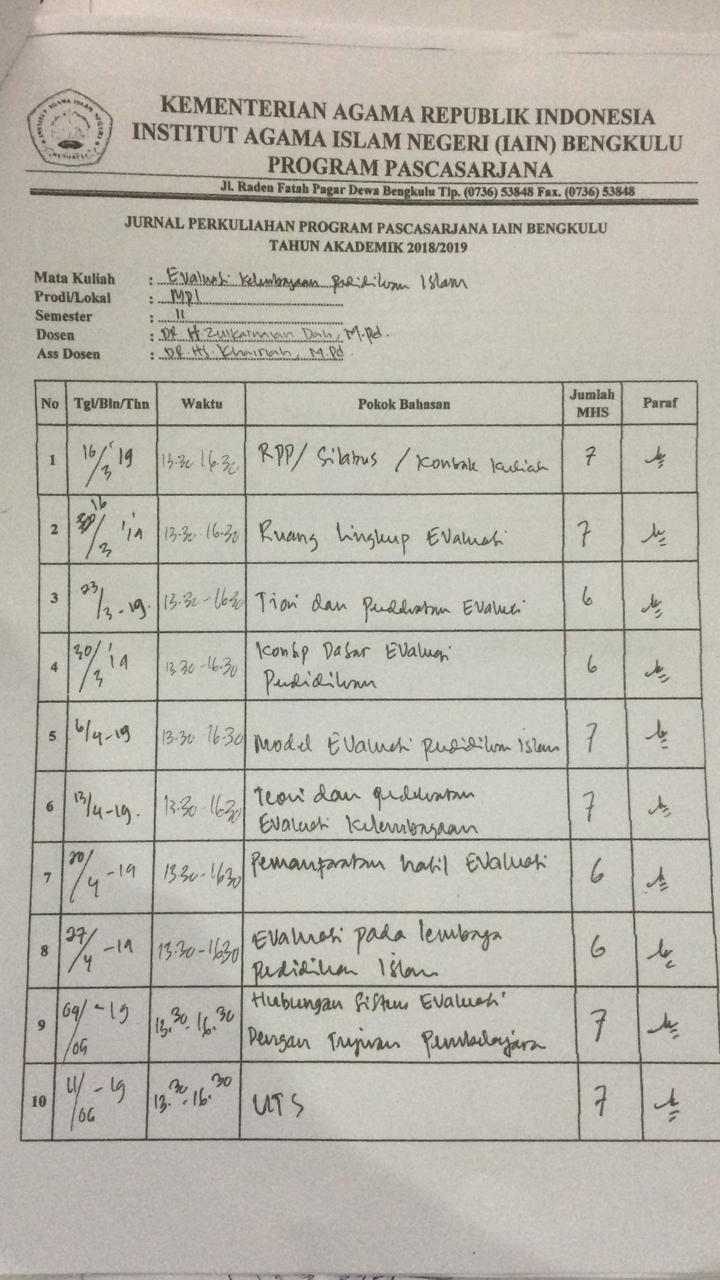 KEMENTERIAN AGAMA REPUBLIK INDONESIA
INSTITUT AGAMA ISLAM NEGERI (IAIN) BENGKULU
PROGRAM PASCASARJANA
Jl. Raden Fatah Pagar Dewa Bengkulu Tlp. (0736) 53848 Fax. (0736) 53848
JURNAL PERKULIAHAN PROGRAM PASCASARJANA IAIN BENGKULU
TAHUN AKADEMIK 2018/2019
Mata Kuliah : Evaluasi Kelembagaan Pendidikan Islam
Prodi/Lokal : MPI
Semester : II
Dosen : DR. H. Zulkarnain Dali, M.Pd.
Ass Dosen : DR. Hj. Khairiah, M.Pd
No Tgl/Bln/Thn Waktu Pokok Bahasan Jumlah MHS Paraf
1 16/3 '19 13.30 16.30 RPP/ Silabus / Kontrak Kuliah 7
2 16/3 '19 13.30 - 16.30 Ruang Lingkup Evaluasi 7
3 23/3 - 19. 13.30 - 16.30 Tiori dan Pendekatan Evaluasi 6
4 30/3 '19 13.30 - 16.30 Konsep Dasar Evaluasi
Pendidikan 6
5 6/4 - 19 13.30 16.30 Model Evaluasi pendidikan Islam 7
6 13/4 - 19. 13.30 - 1630 Teori dan pendekatan
Evaluasi Kelembagaan 7
7 20/4 - 19 13.30 - 1630 Pemanfaatan hasil Evaluasi 6
8 27/4 - 19 13.30 - 1630 Evaluasi pada lembaga
Pendidikan Islam 6
9 04/05 - 19 13.30 - 16.30 Hubungan Sistem Evaluasi
Dengan Tujuan Pembelajaran 7
10 11/ - 19 13.30 - 16.30 UTS 7